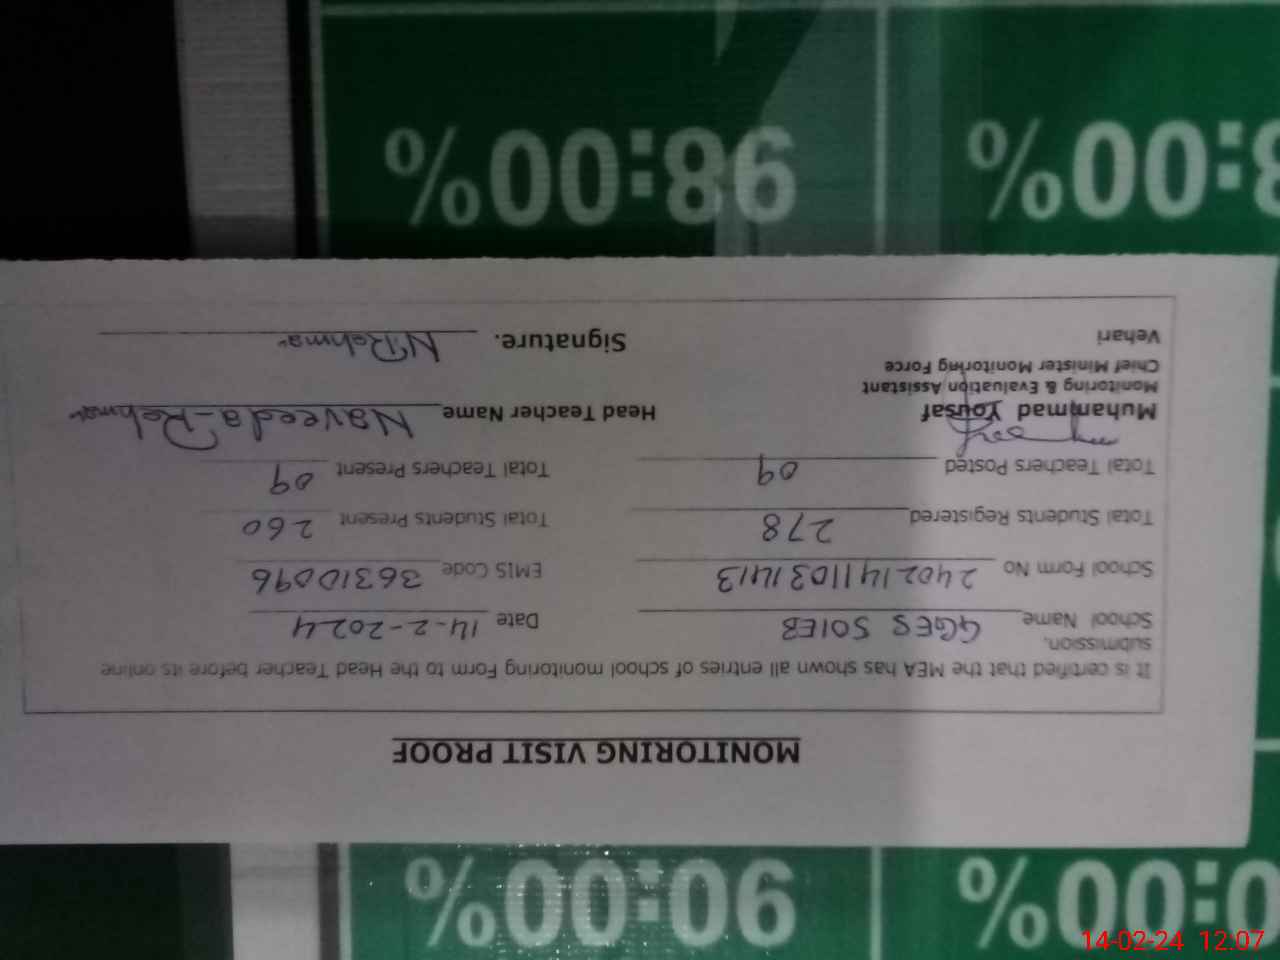 0:00% 90:00%
MONITORING VISIT PROOF
It is certified that the MEA has shown all entries of school monitoring Form to the Head Teacher before its online
submission.
School Name GGES 501EB Date 14-2-2024
School Form No 24021411031413 EMIS Code 36310096
Total Students Registered 278 Total Students Present 260
Total Teachers Posted 09 Total Teachers Present 09
Muhammad Yousaf Head Teacher Name Naveeda-Rehman
Monitoring & Evaluation Assistant
Chief Minister Monitoring Force
Vehari Signature. N'Rehman
:00% 98:00%
14-02-24 12:07